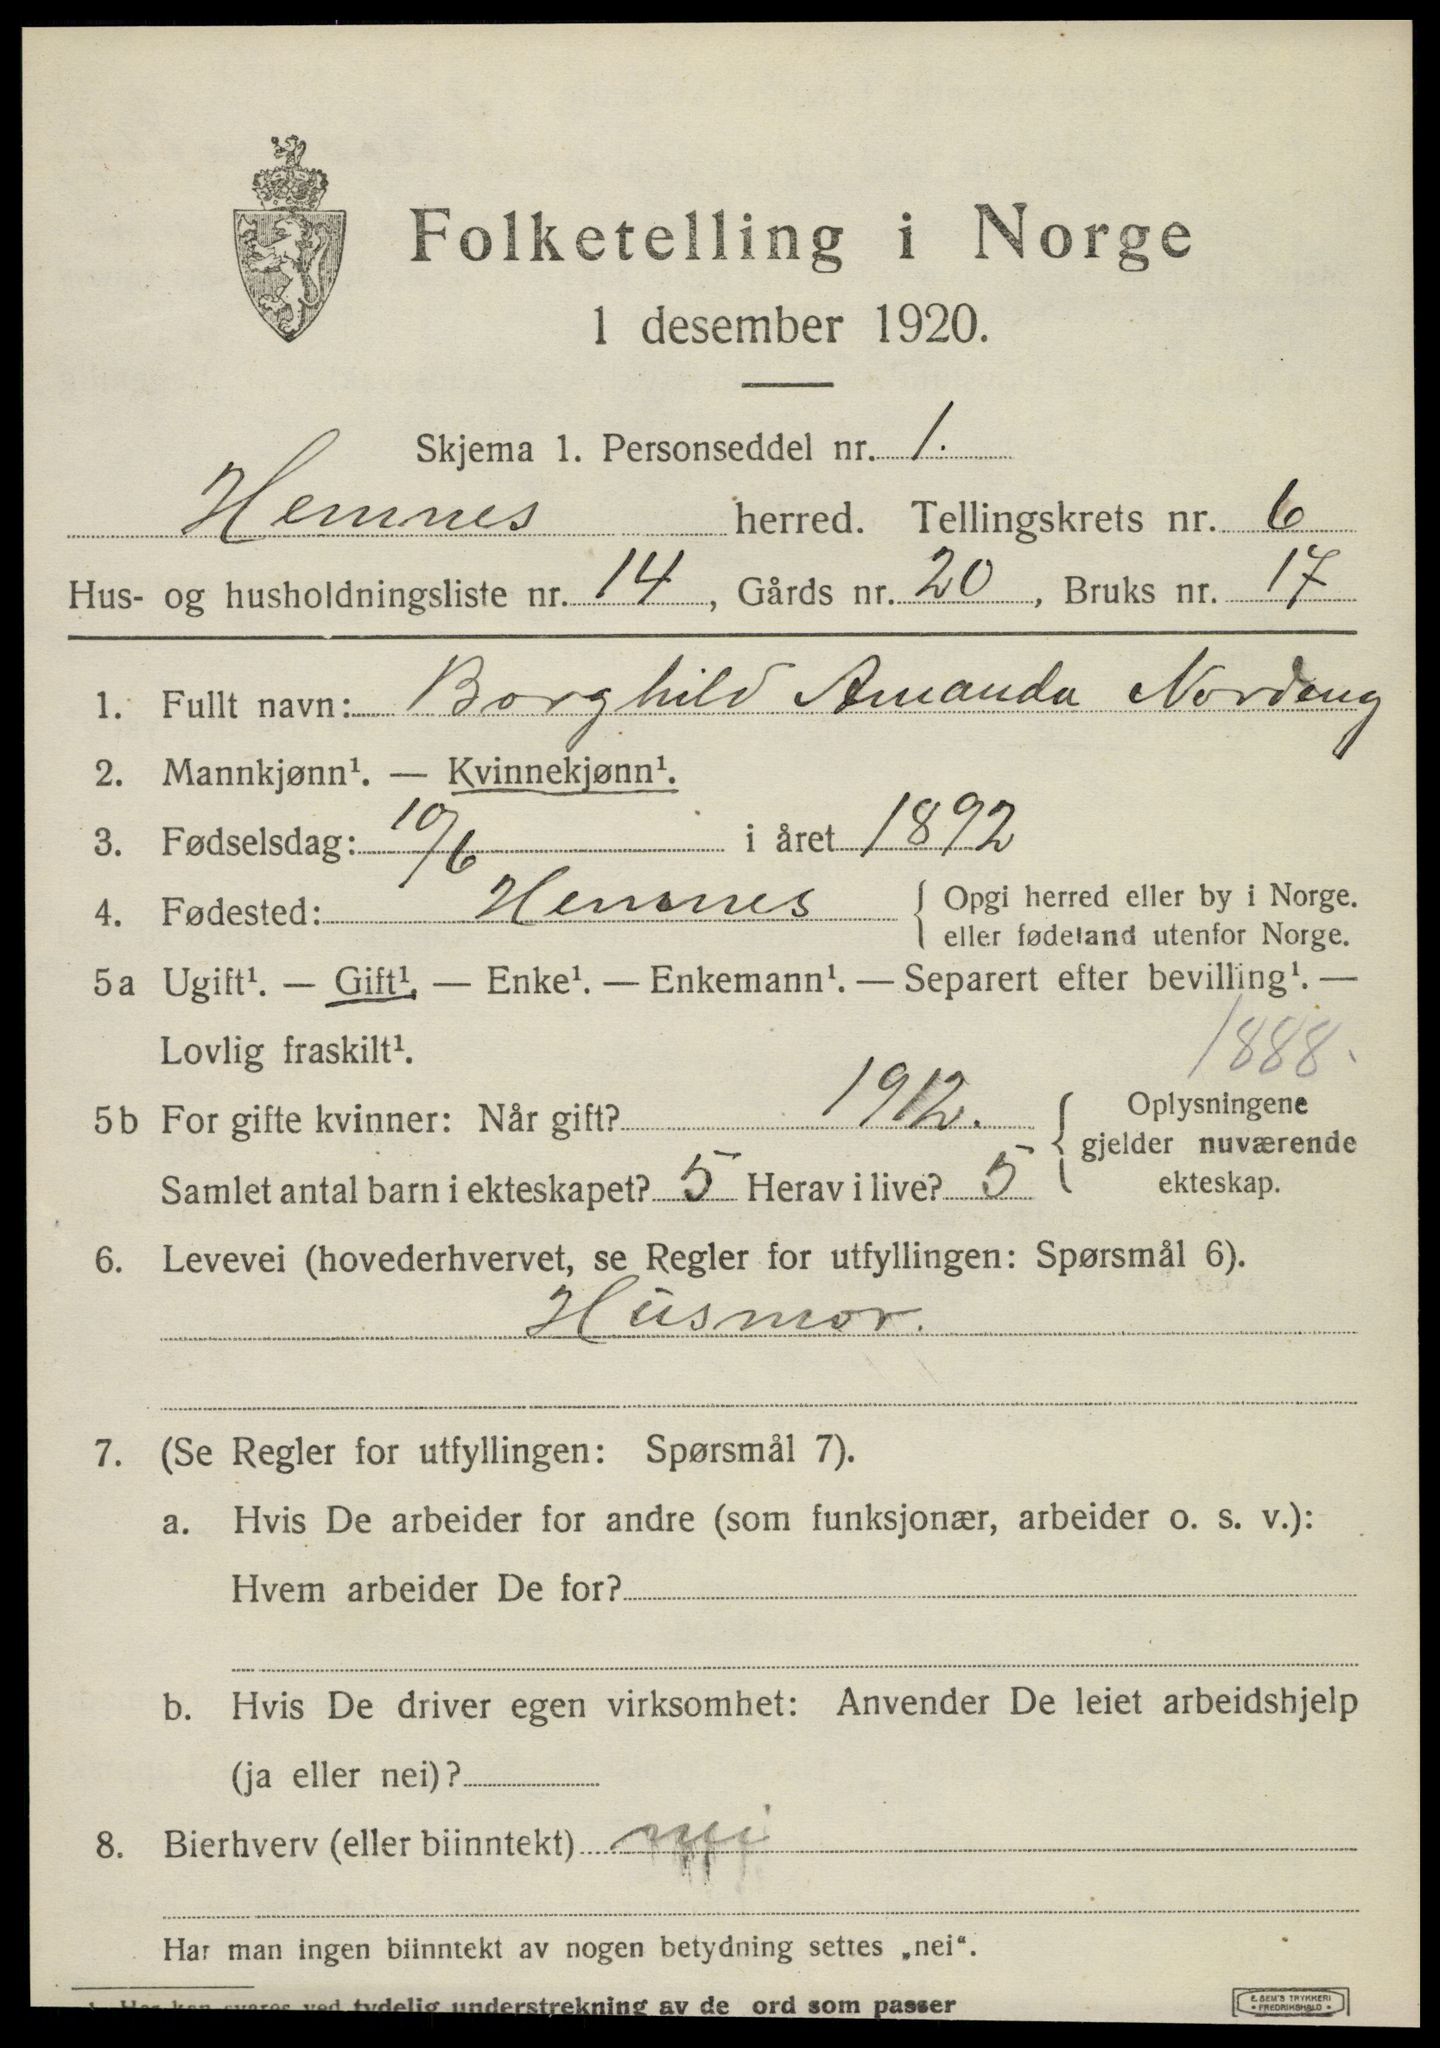 Folketelling i Norge
1 desember 1920.
Skjema 1. Personseddel nr. 1.
Hemnes herred. Tellingskrets nr. 6
Hus- og husholdningsliste nr. 14, Gårds nr. 20, Bruks nr. 17
1. Fullt navn: Borghild Amanda Nordeng
2. Mannkjønn¹. — Kvinnekjønn¹.
3. Fødselsdag: 10/6 i året 1892
4. Fødested: Hemnes { Opgi herred eller by i Norge.
eller fødeland utenfor Norge.
5a Ugift¹. — Gift¹. — Enke¹. — Enkemann¹. — Separert efter bevilling¹. —
Lovlig fraskilt¹. 1888.
5b For gifte kvinner: Når gift? 1912. { Oplysningene
gjelder nuværende
Samlet antal barn i ekteskapet? 5 Herav i live? 5 ekteskap.
6. Levevei (hovederhvervet, se Regler for utfyllingen: Spørsmål 6).
Husmor.
7. (Se Regler for utfyllingen: Spørsmål 7).
a. Hvis De arbeider for andre (som funksjonær, arbeider o. s. v.):
Hvem arbeider De for?
b. Hvis De driver egen virksomhet: Anvender De leiet arbeidshjelp
(ja eller nei)?
8. Bierhverv (eller biinntekt) nei
Har man ingen biinntekt av nogen betydning settes „nei“.
¹ Her kan svares ved tydelig understrekning av de ord som passer
E. SEM'S TRYKKERI
FREDRIKSHALD